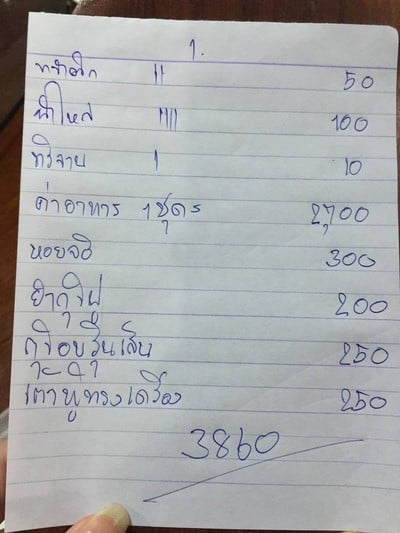 1.
น้ำแข็ง || 50
น้ำใหส |||| 100
ทิวลาย | 10
ค่าอาหาร 1 ชุด 2,700
หอยจ้อ 300
ยำถั่วพู 200
กุ้งอบวุ้นเส้น 250
เต้าหู้ทรงเครื่อง 250
3860